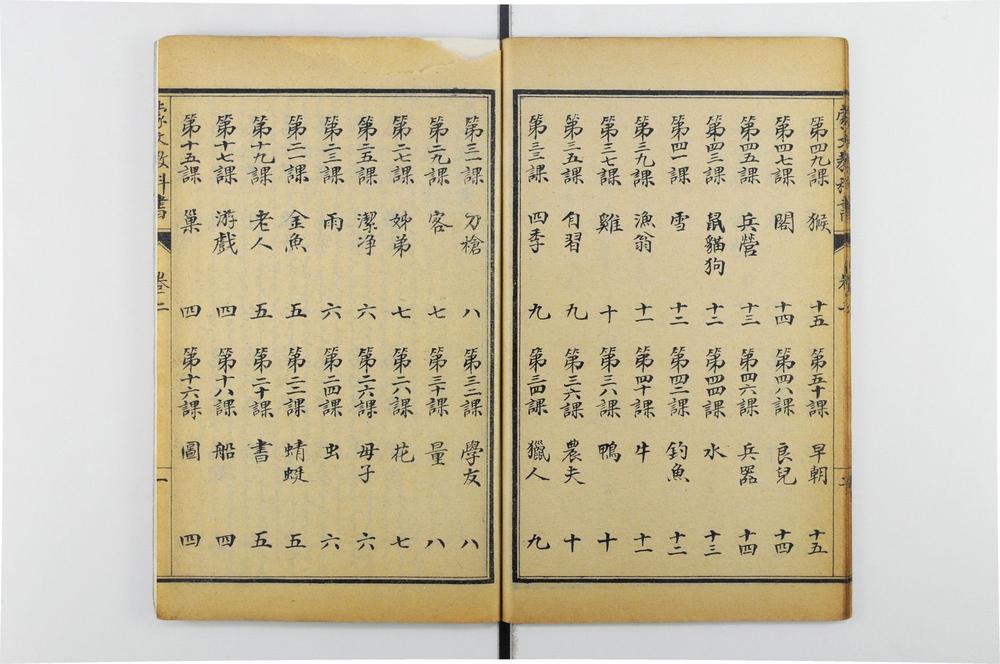 蒙文教科書 卷二 一
第十五課 巢 四 第十六課 圖 四
第十七課 游戲 四 第十八課 船 四
第十九課 老人 五 第二十課 書 五
第二一課 金魚 五 第二二課 蜻蜓 五
第二三課 雨 六 第二四課 虫 六
第二五課 潔净 六 第二六課 母子 六
第二七課 姊弟 七 第二八課 花 七
第二九課 客 七 第三十課 量 八
第三一課 刀槍 八 第三二課 學友 八
第三三課 四季 九 第三四課 獵人 九
第三五課 自習 九 第三六課 農夫 十
第三七課 雞 十 第三八課 鴨 十
第三九課 漁翁 十一 第四十課 牛 十一
第四一課 雪 十二 第四二課 釣魚 十二
第四三課 鼠貓狗 十二 第四四課 水 十三
第四五課 兵營 十三 第四六課 兵器 十四
第四七課 閣 十四 第四八課 良兒 十四
第四九課 猴 十五 第五十課 早朝 十五
蒙文教科書